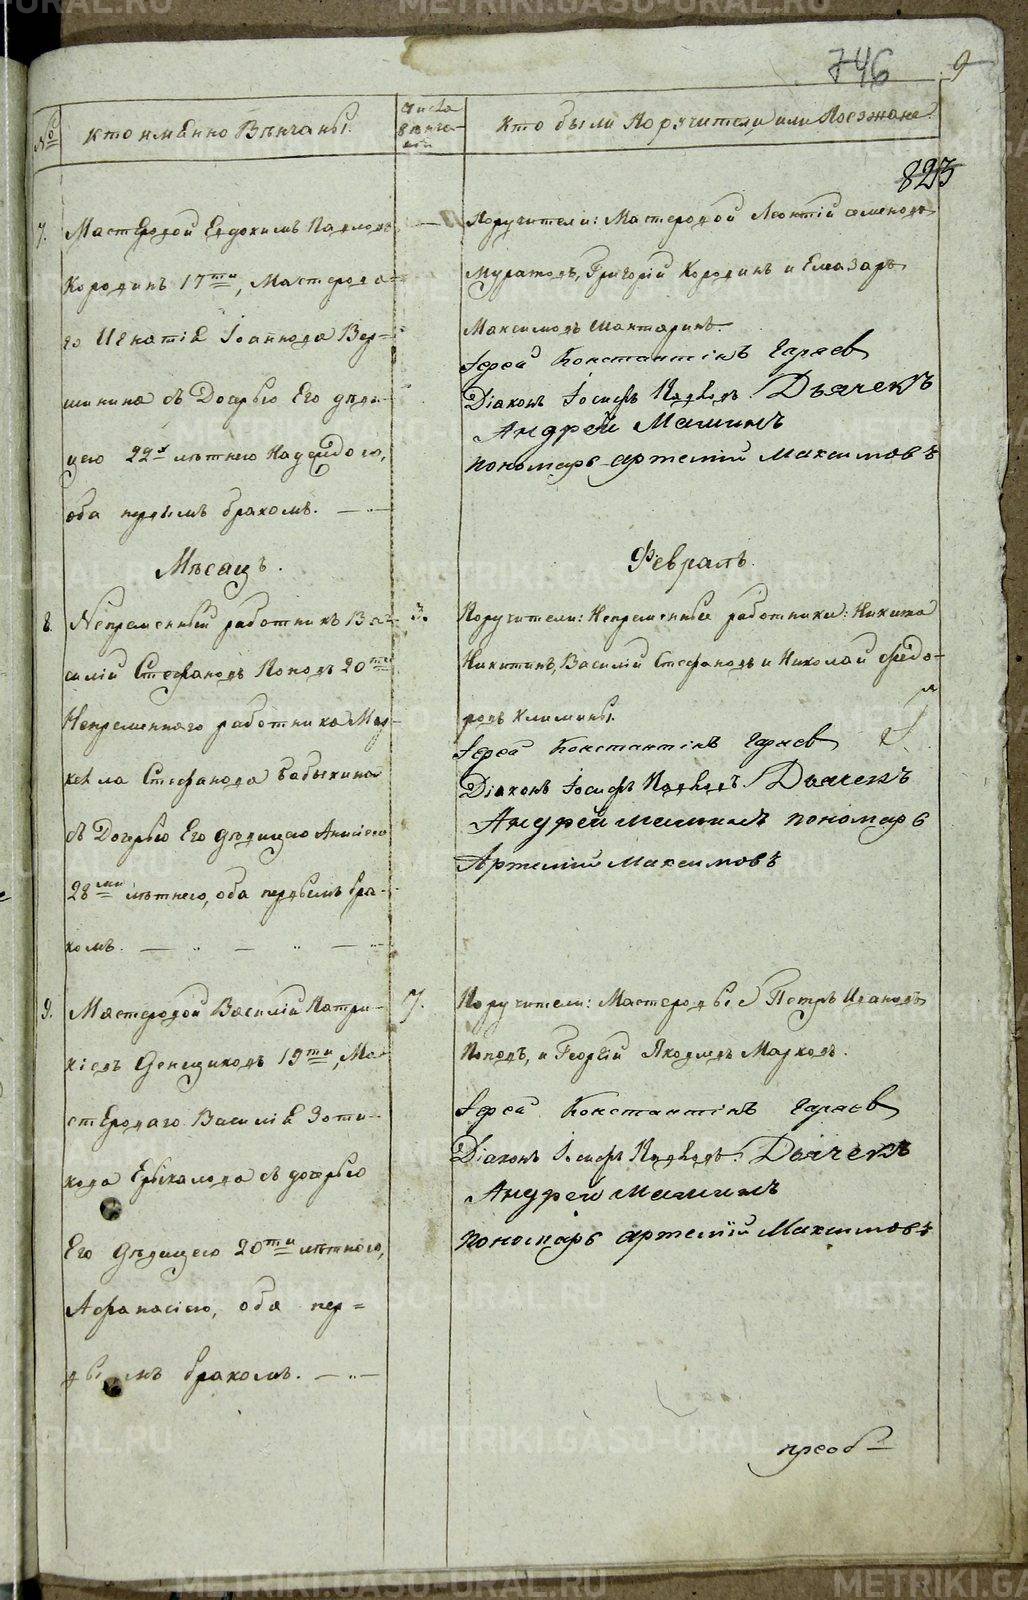 METRIKI.GASO-URAL.RU
746 9
№
кто именно Вѣнчаны.
числа Вѣнча-
нiй
Кто были Поручители, или Поезжане.
823
7. Мастеровой Евдокимъ Павловъ
Коровинъ 17ти, Мастерова-
го Игнатiя Iоаннова Вер-
шинина съ Дочерью Его дѣви-
цею 22х лѣтнею Надеждою,
оба первымъ бракомъ.
Поручители: Мастеровой Леонтiй Семеновъ
Муратовъ, Григорiй Коровинъ и Елеазаръ
Максимовъ Шахтаринъ.
Iерей Константiнъ Гаряев
Дiаконъ Iосифъ Павловъ Дьячекъ
Андрей Мамин
пономарь артемiй Максимовъ
Мѣсяцъ.
Февраль.
8. Непременный работникъ Ва-
силiй Стефановъ Поповъ 20ти
Непременнаго работника Мар-
кела Стефанова Бабыкина
съ Дочерью Его дѣвицею Анисiею
28ми лѣтнею, оба первымъ бра-
комъ.
3.
Поручители: Непременные работники: Никита
Никитинъ, Василiй Стефановъ и Николай Федо-
ровъ Климины.
Iерей Константiнъ Гаряев
Дiаконъ Iосифъ Павловъ Дьячекъ
Андрей мамин пономарь
Артемiй Максимовъ
9. Мастеровой Василiй Патри-
кiевъ Денщиковъ 19ти, Ма-
стероваго Василiя Зоти-
кова Ерыкалова съ дочерью
Его дѣвицею 20ти лѣтнею,
Афанасiею, оба пер=
вымъ бракомъ.
7.
Поручители: Мастеровые Петръ Ивановъ
Поповъ, и Георгiй Яковлевъ Марковъ.
Iерей Константiнъ Гаряев
Дiаконъ Iосифъ Павловъ. Дьячекъ
Андрей мамин
пономарь артемiй Максимовъ
преоб-